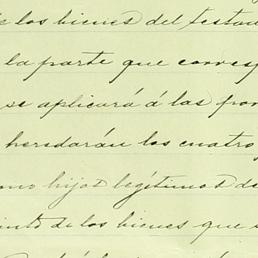 de los bienes del testa
la parte que corresp
se aplicará á las por
heredarán los cuatro
omo hijos legítimos de
iento de los bienes que